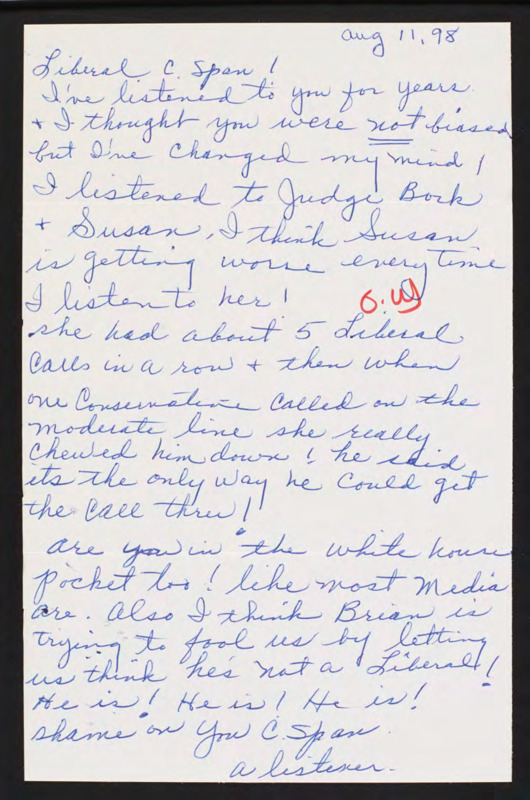 Aug 11, 98
Liberal C. Span!
I've listened to you for years
+ I thought you were not biased
but I've changed my mind!
I listened to Judge Bork
+ Susan, I think Susan
is getting worse everytime
I listen to her!
she had about 5 Liberal
Calls in a row + then when
one Conservative Called on the
moderate line she really
Chewed him down! he said
its the only way he could get
the Call thru!
are you in the white house
pocket too! like most Media
are. Also I think Brian is
trying to fool us by letting
us think he's not a Liberal!
He is! He is! He is!
shame on You C. Span
a listener.